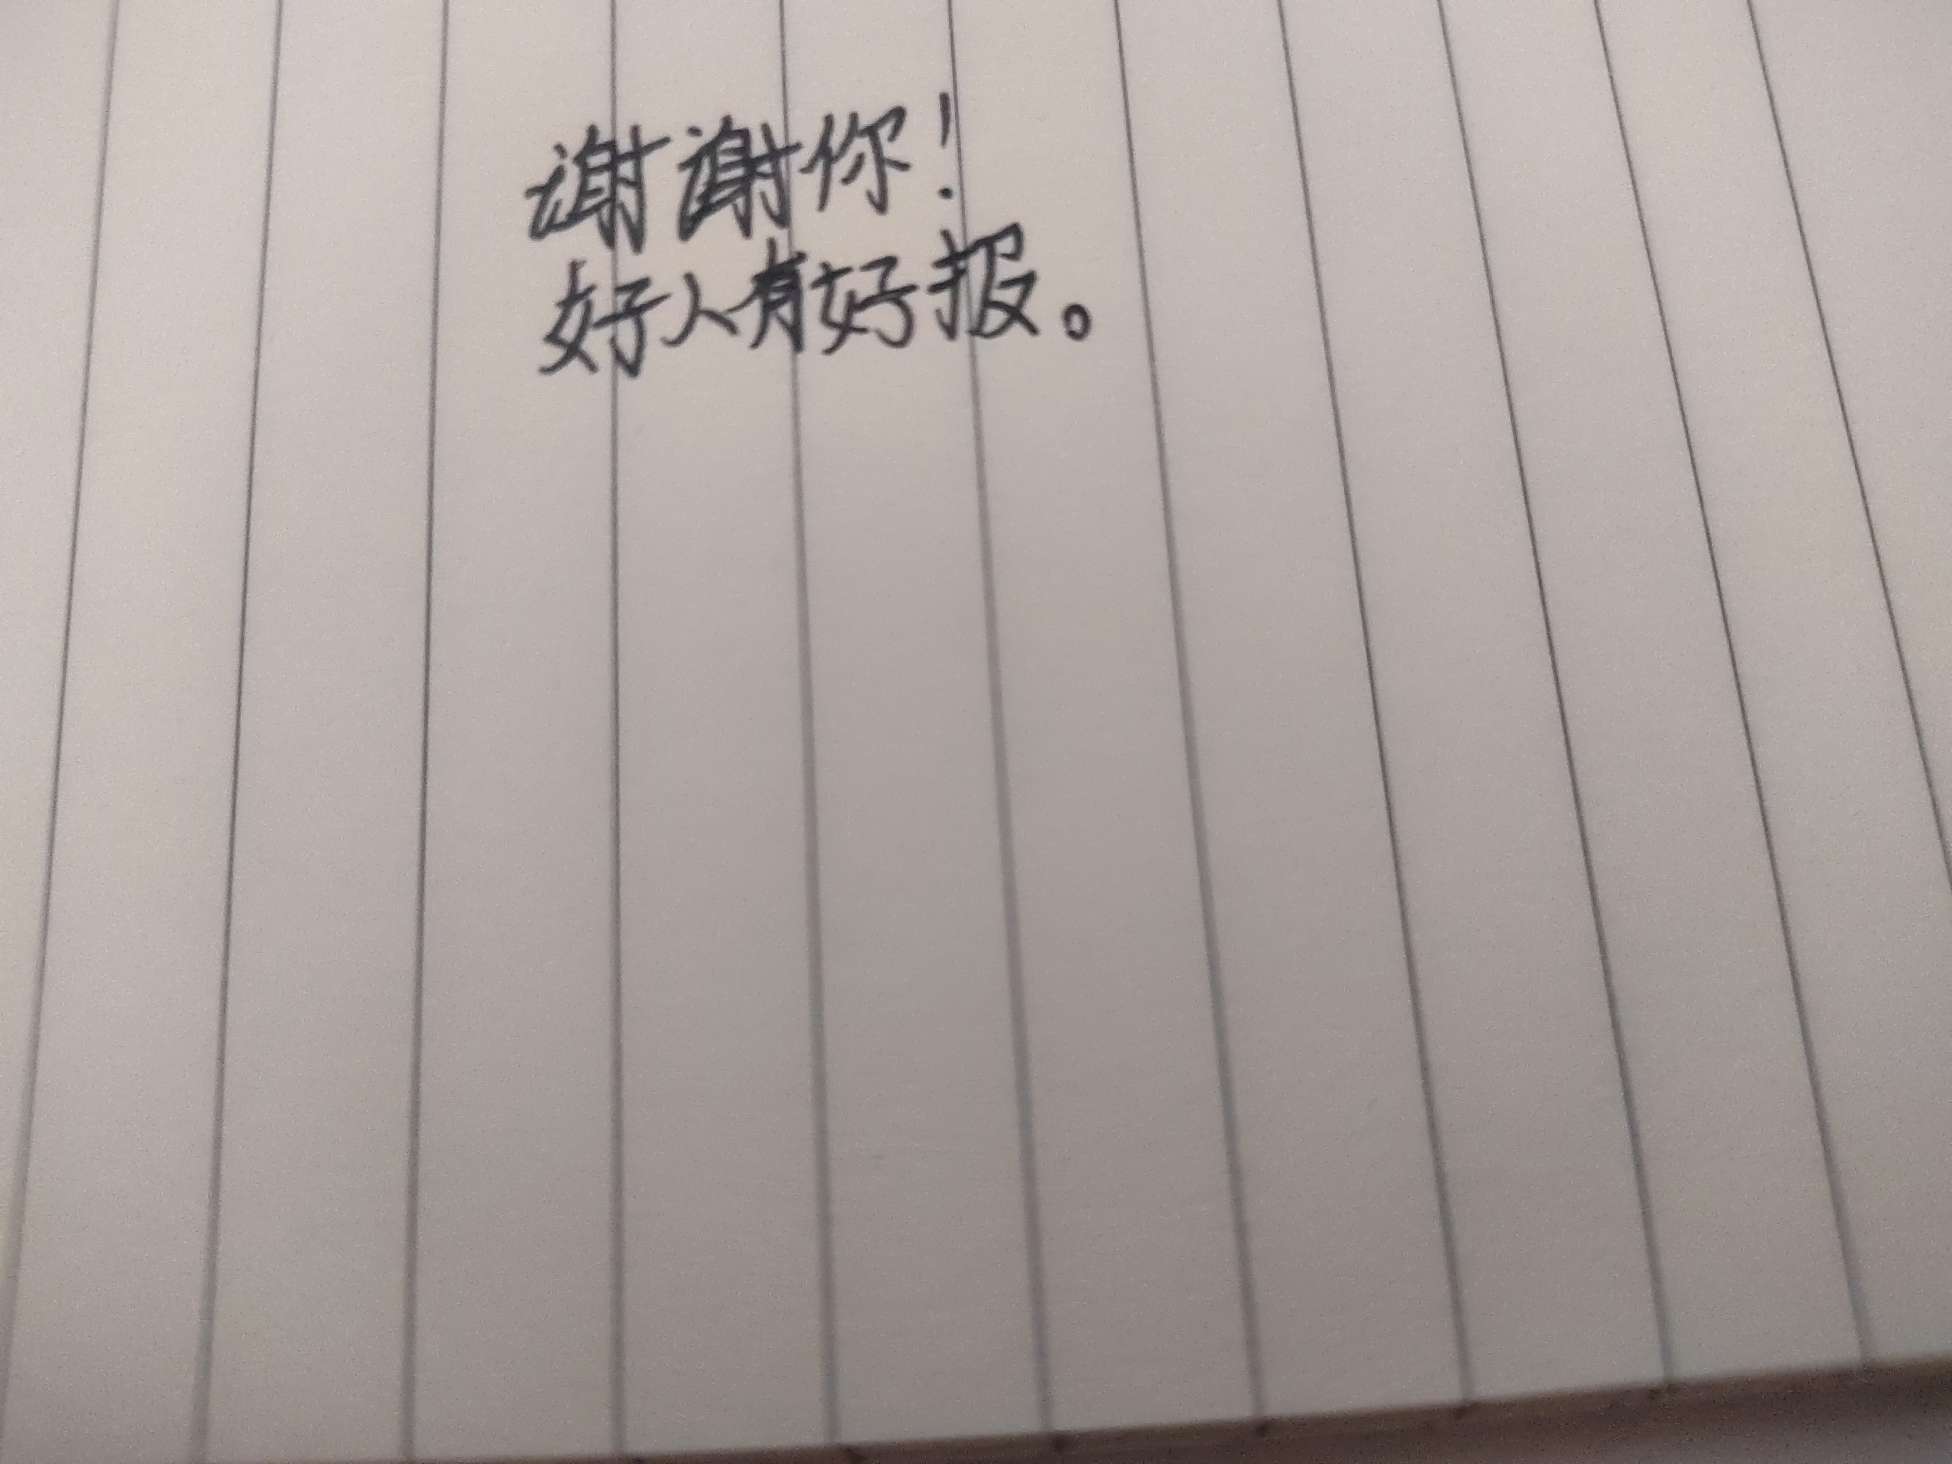 谢谢你！
好人有好报。